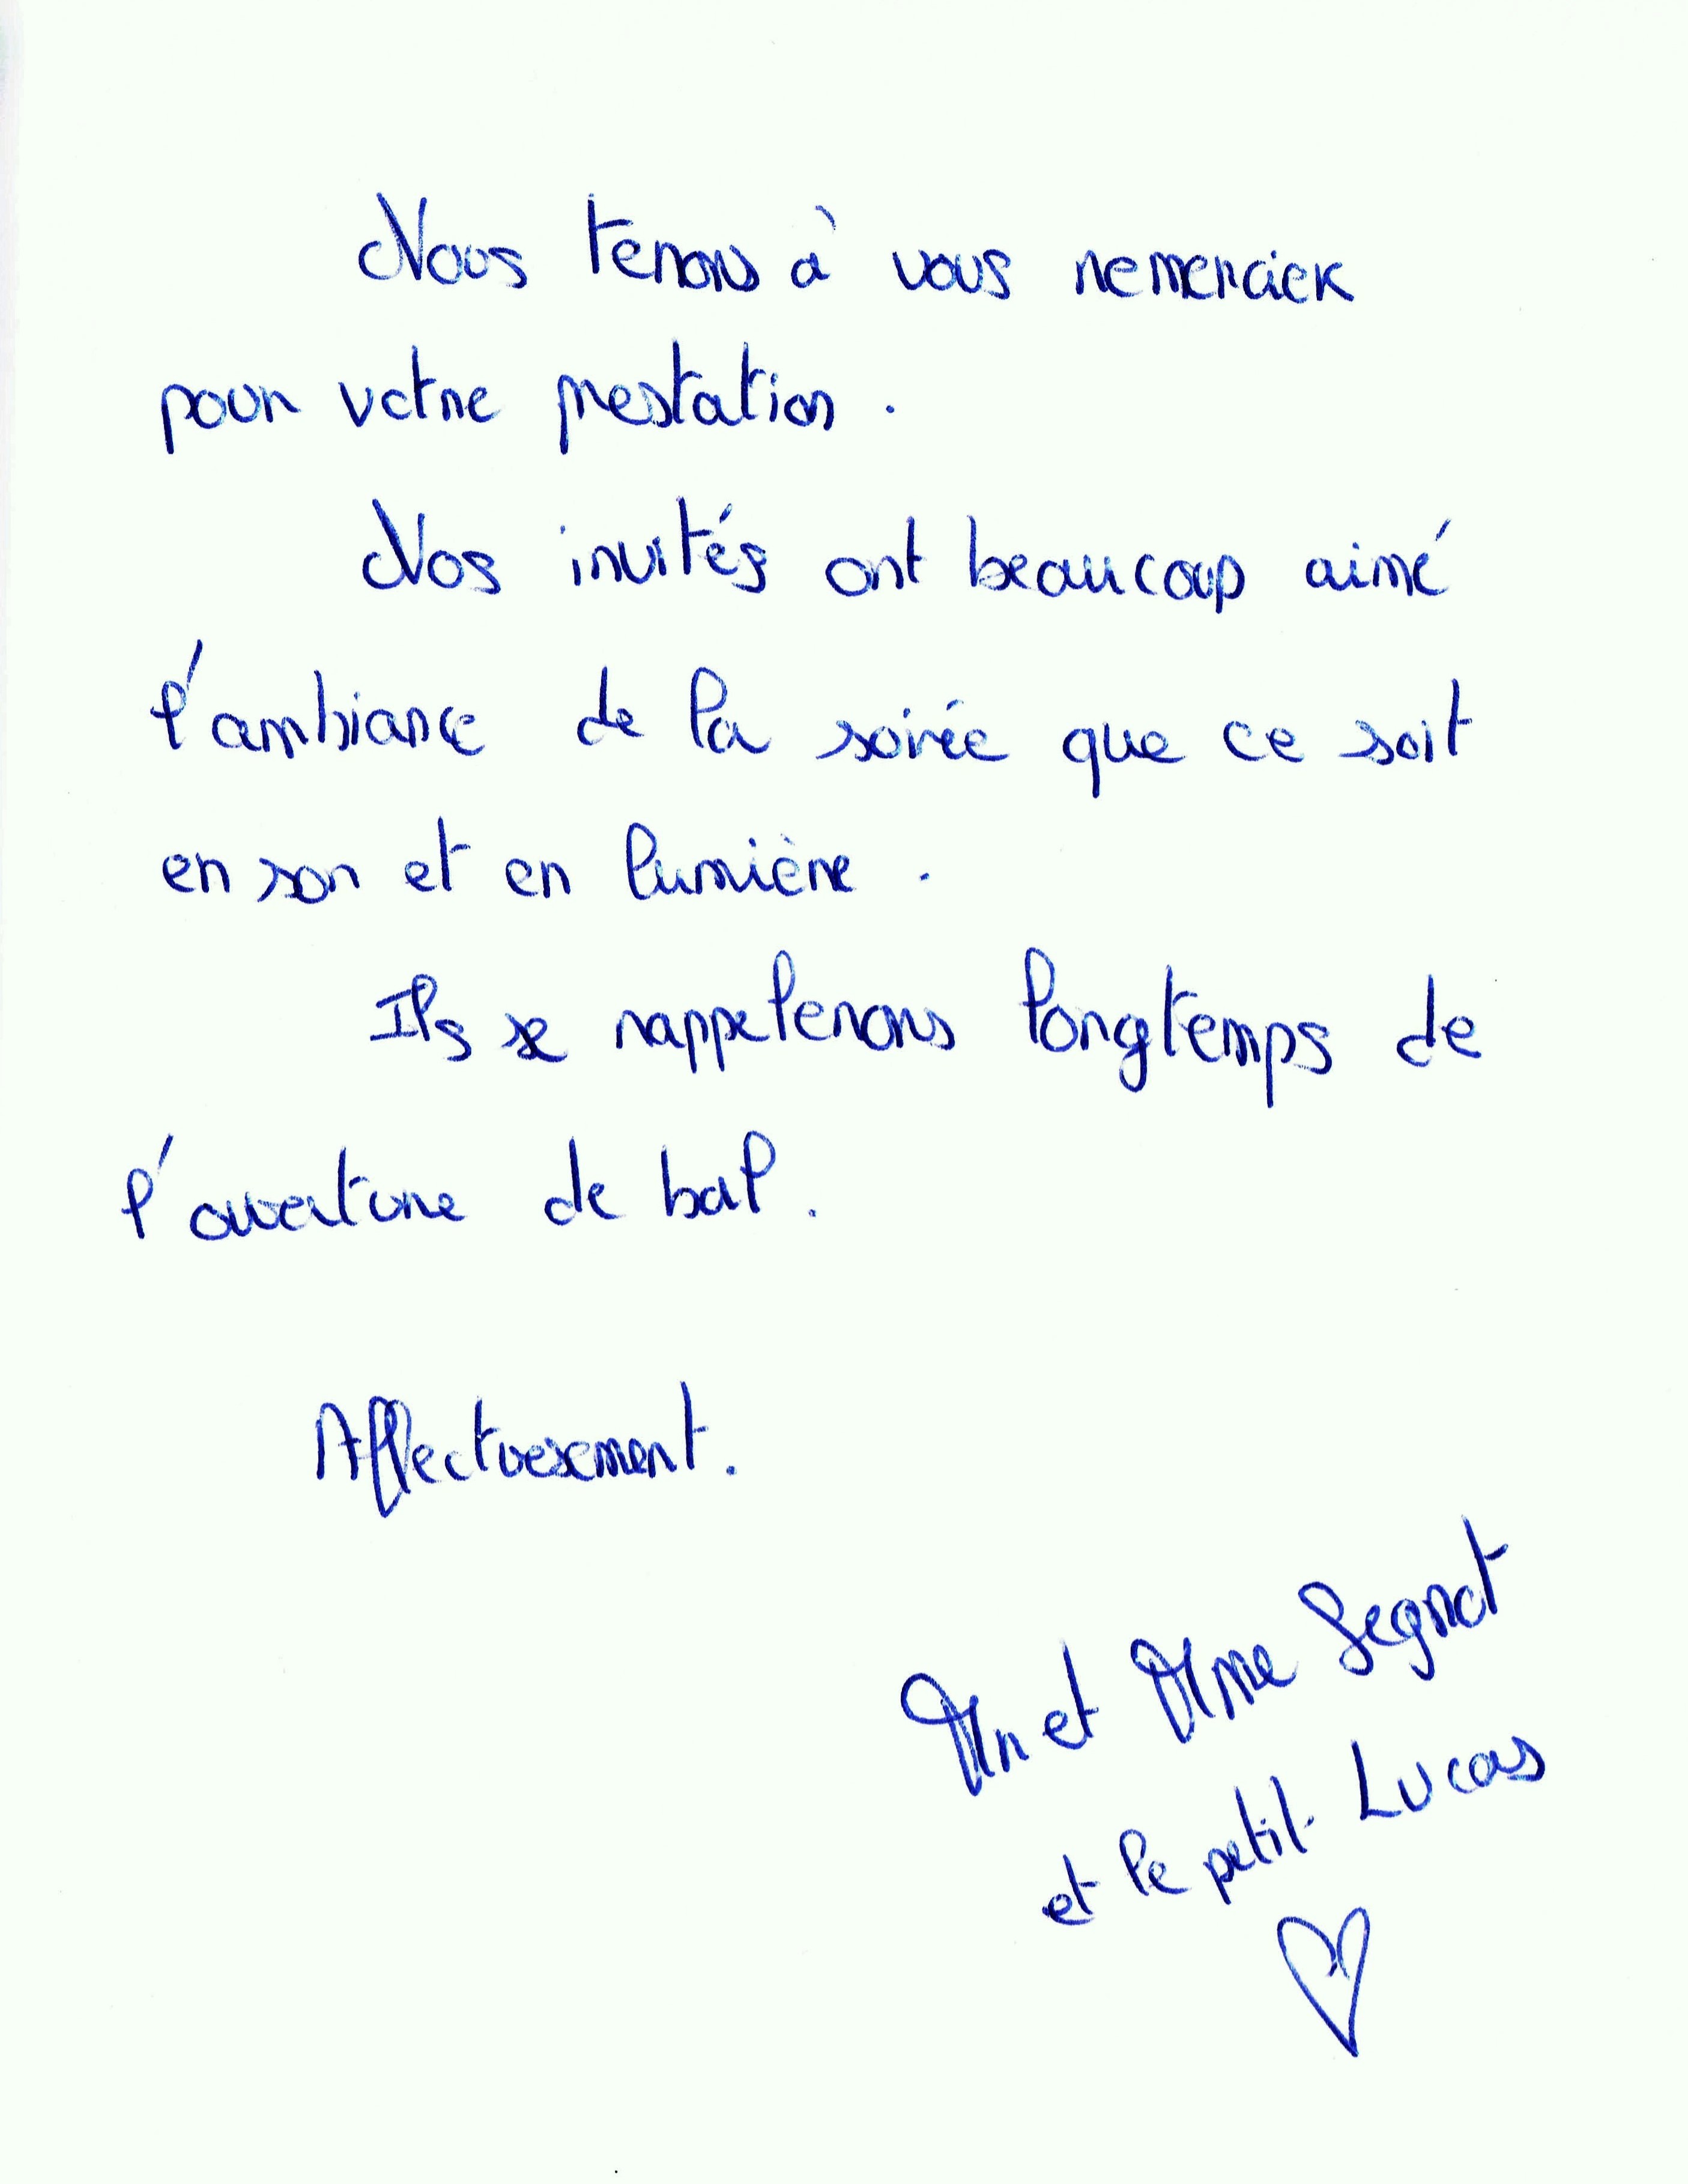 Nous tenons à vous remercier
pour votre prestation.
Nos invités ont beaucoup aimé
l'ambiance de la soirée que ce soit
en son et en lumière.
Ils se rappelerons longtemps de
l'ouverture de bal.
Affectuesement.
Mr et Mme Segnot
et le petit Lucas